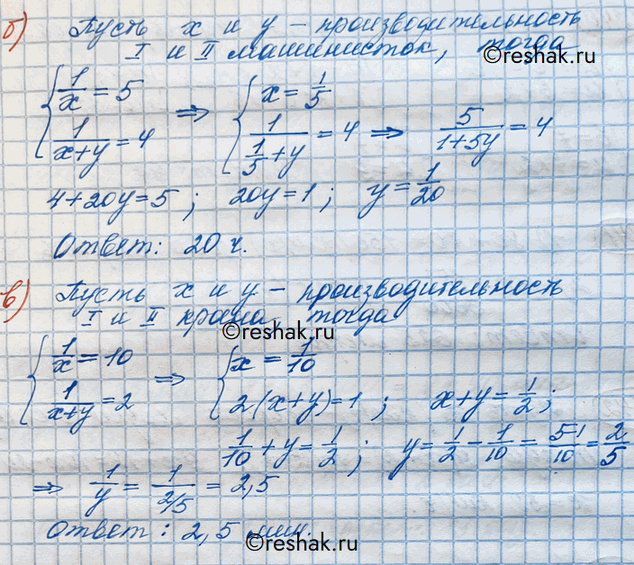 б) Пусть x и y – производительность
I и II машинисток, тогда
©reshak.ru
{ 1/x = 5 ⇒ { x = 1/5
1/(x+y) = 4 1/(1/5 + y) = 4 ⇒ 5/(1+5y) = 4
4+20y=5 ; 20y=1 ; y = 1/20
Ответ: 20 ч.
в) Пусть x и y – производительность
I и II крана тогда
©reshak.ru
{ 1/x = 10 ⇒ { x = 1/10
1/(x+y) = 2 2(x+y)=1 ; x+y = 1/2 ;
1/10 + y = 1/2 ; y = 1/2 - 1/10 = 5-1/10 = 2/5
⇒ 1/y = 1/(2/5) = 2,5
Ответ : 2,5 мин.
©reshak.ru